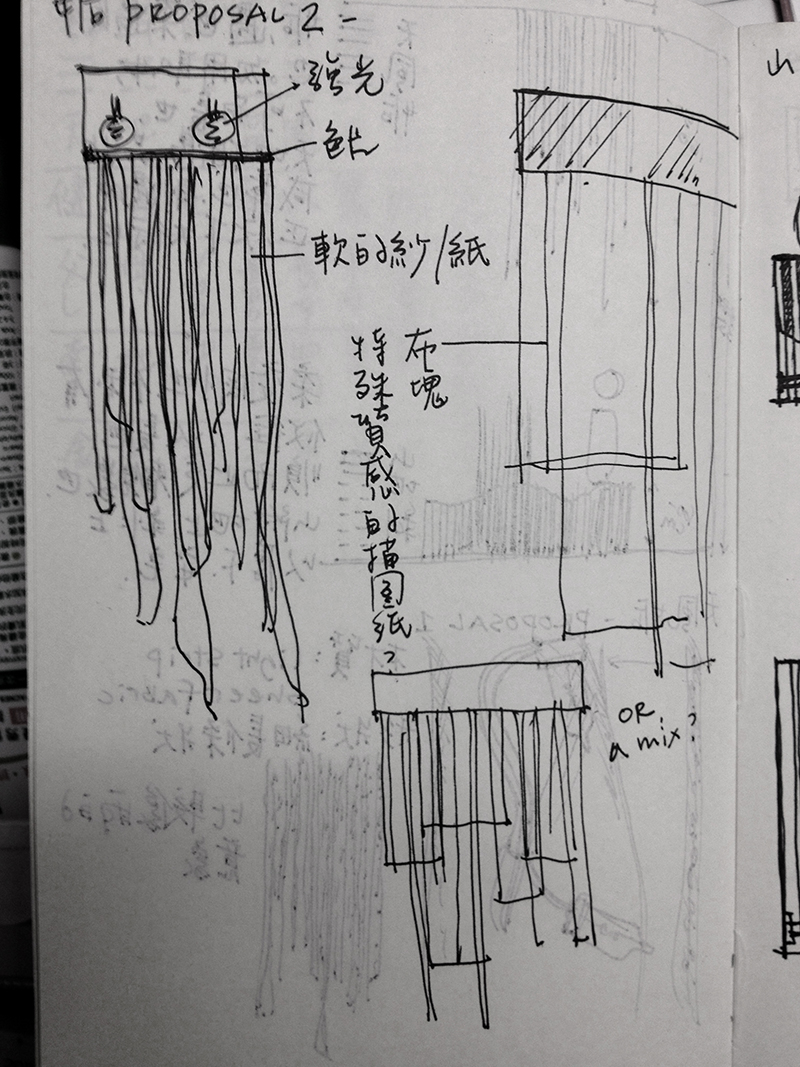 PROPOSAL 2 -
強光
色片
軟的紗/紙
布塊
特殊質感的描圖紙?
OR
a mix?
山